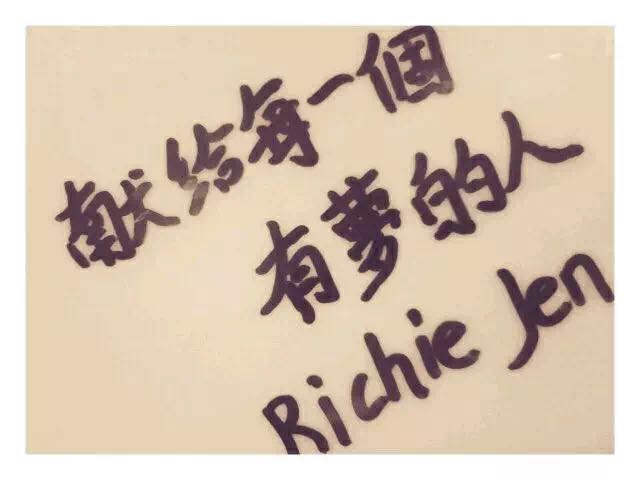 献给每一個
有夢的人
Richie Jen